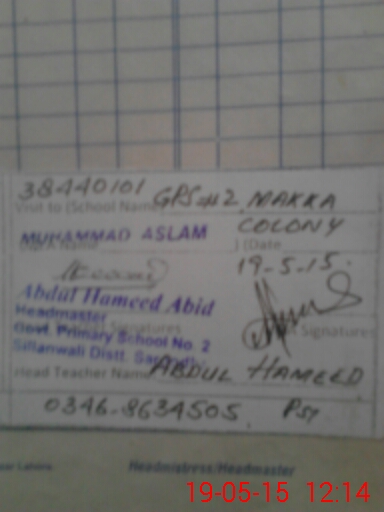 38440101 GPS #2 MAKKA
Visit to (School Name)
COLONY
MUHAMMAD ASLAM
Name
) (Date
19-5-15.
Abdul Hameed Abid
Headmaster
Signatures
Signatures
Govt. Primary School No. 2
Sillanwali Distt.
Head Teacher Name ABDUL HAMEED
0346-8634505 PST
Lahore
Headmistress/Headmaster
19-05-15 12:14